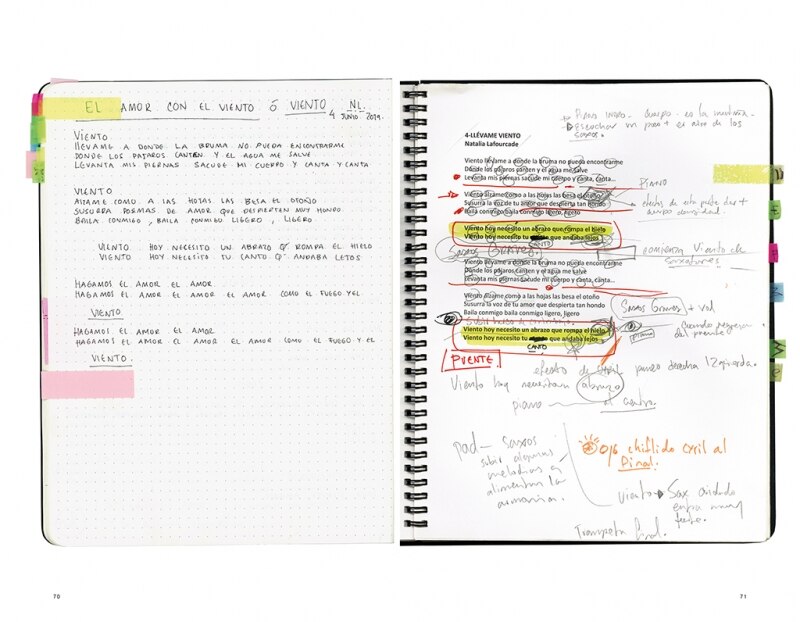 EL AMOR CON EL VIENTO Ó VIENTO, NL.
4 JUNIO. 2019.
VIENTO
LLÉVAME A DONDE LA BRUMA NO PUEDA ENCONTRARME
DONDE LOS PAJAROS CANTEN Y EL AGUA ME SALVE
LEVANTA MIS PIERNAS SACUDE MI CUERPO Y CANTA Y CANTA
VIENTO
ALZAME COMO A LAS HOJAS LAS BESA EL OTOÑO
SUSURRA POEMAS DE AMOR QUE DESPIERTEN MUY HONDO
BAILA CONMIGO, BAILA CONMIGO LIGERO, LIGERO
VIENTO HOY NECESITO UN ABRAZO Q ROMPA EL HIELO
VIENTO HOY NECESITO TU CANTO Q ANDABA LEJOS
HAGAMOS EL AMOR EL AMOR
HAGAMOS EL AMOR EL AMOR EL AMOR COMO EL FUEGO Y EL
VIENTO
HAGAMOS EL AMOR EL AMOR
HAGAMOS EL AMOR EL AMOR EL AMOR COMO EL FUEGO Y EL
VIENTO.
70
PIANO INTRO.
Escuchar un poco + el aire de los
saxos.
4-LLÉVAME VIENTO
Natalia Lafourcade
Viento llévame a donde la bruma no pueda encontrarme
Donde los pájaros canten y el agua me salve
Levanta mis piernas sacude mi cuerpo y canta, canta...
PIANO
Viento álzame como a las hojas las besa el otoño
Susurra la voz de tu amor que despierta tan hondo
Baila conmigo baila conmigo ligero, ligero
Viento hoy necesito un abrazo que rompa el hielo
Viento hoy necesito tu que andaba lejos
CANTO
Saxos Graves.
comienza Viento de
Saxofones
Viento llévame a donde la bruma no pueda encontrarme
Donde los pájaros canten y el agua me salve
Levanta mis piernas sacude mi cuerpo y canta, canta...
Viento álzame como a las hojas las besa el otoño
Susurra la voz de tu amor que despierta tan hondo
Baila conmigo baila conmigo ligero, ligero
Saxos Graves + vol
Viento hoy necesito un abrazo que rompa el hielo
Viento hoy necesito tu que andaba lejos
CANTO
piano
PUENTE
efecto de paneo derecha izquierda.
Viento hoy necesitan abrazo
piano
al centro.
pad - saxos
subir algunas
melodias
alimentan la
armonia.
ojo chiflido cyril al
Final.
viento Sax
entra muy
fuerte.
Trompeta final.
71